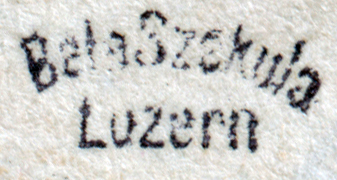 Bela Szekula
Luzern